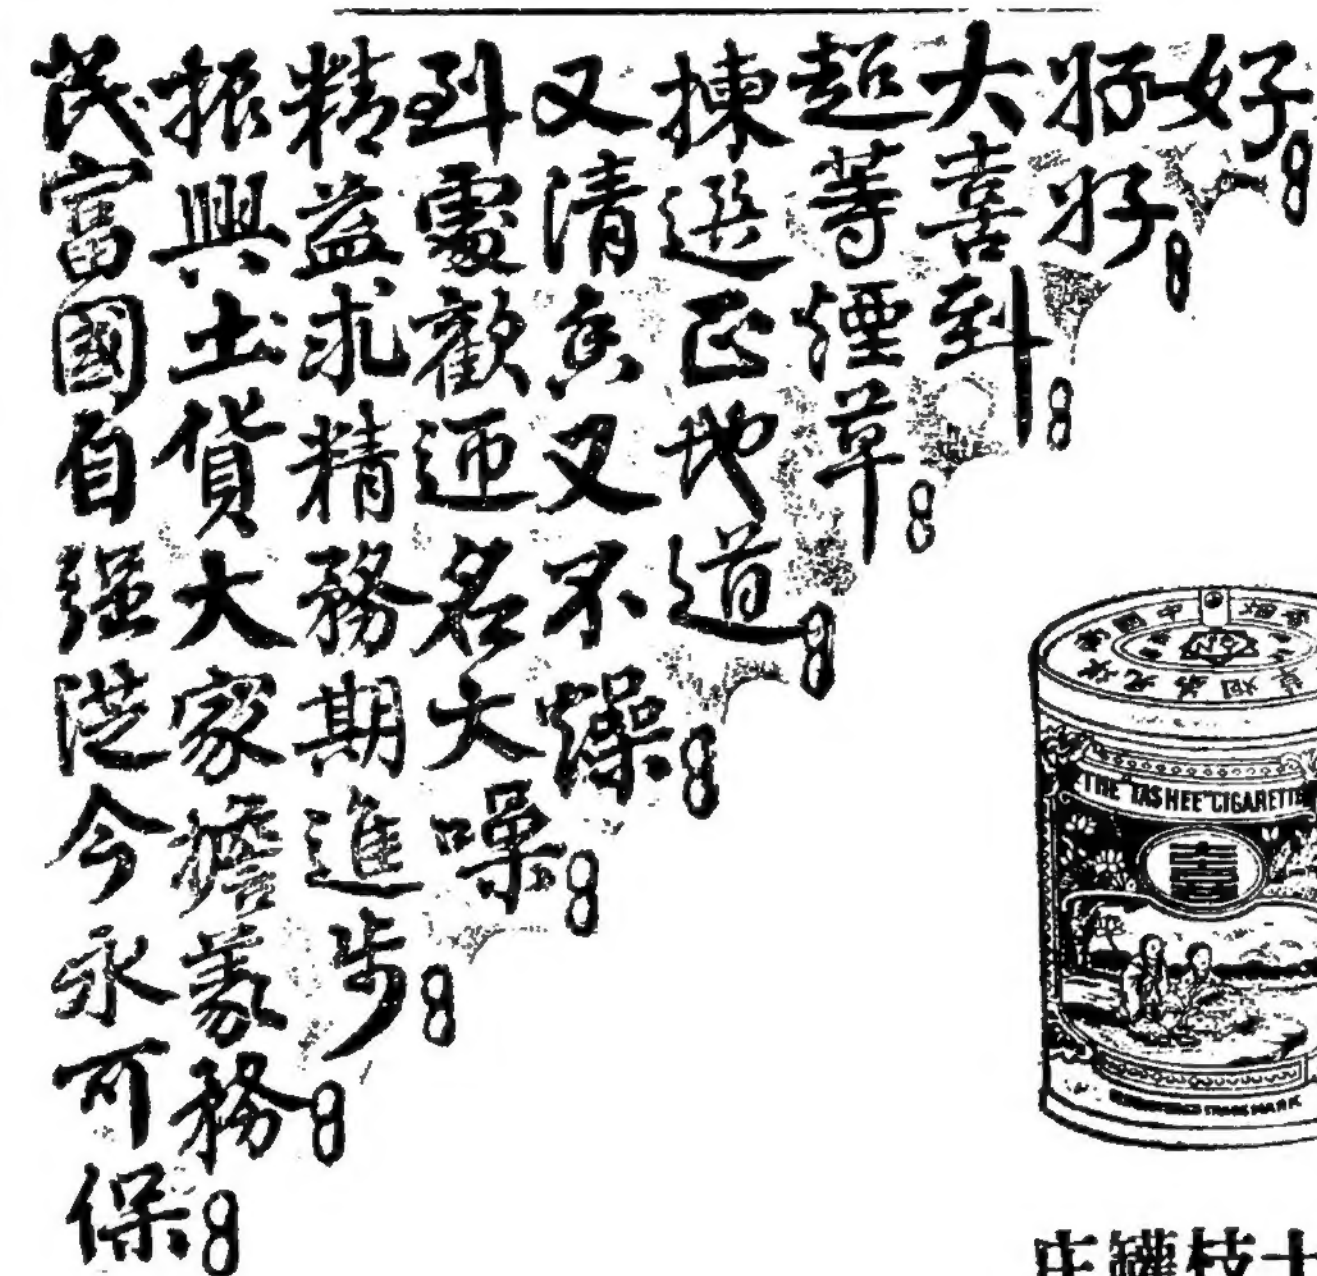 好
好好
大喜到
超等煙草
揀選正地道
又清香又不燥
到處歡迎名大噪
精益求精務期進步
振興土貨大家擔義務
民富國自強從今永可保
THE "TASHEE" CIGARETTE
喜
枝罐